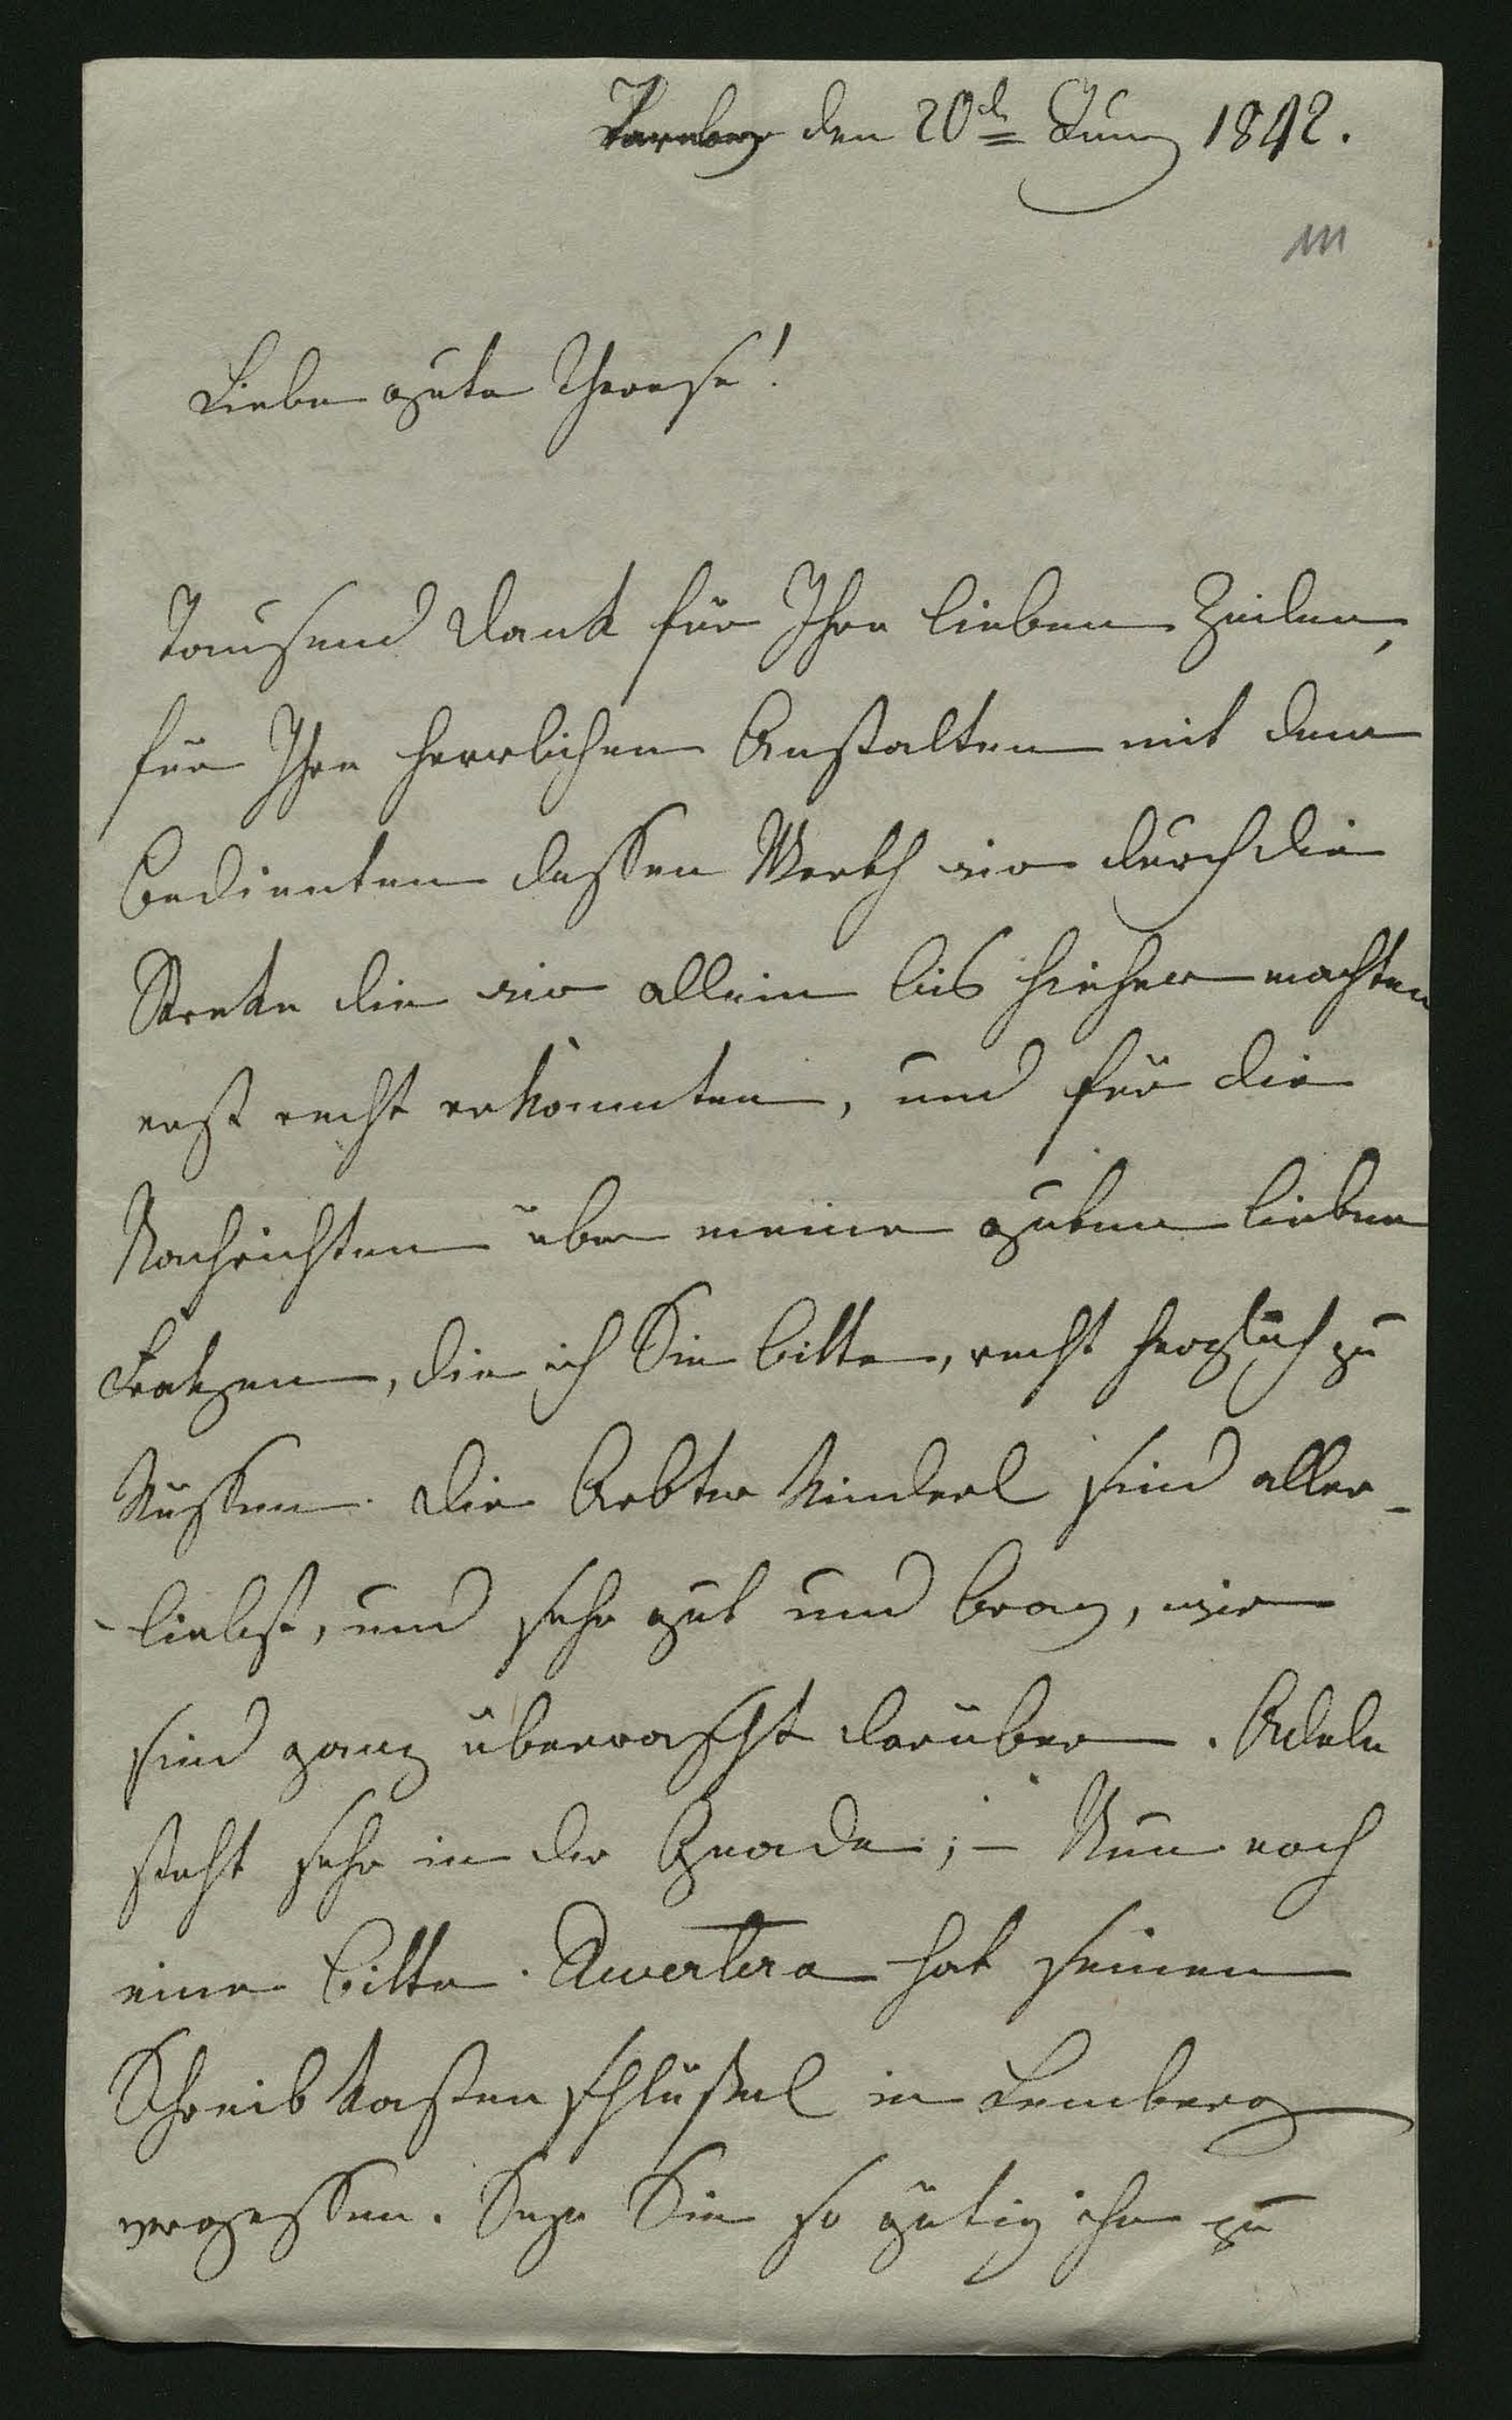 den 20t Juny 1842.
Liebe gute Therese!
Tausend Dank für Ihre lieben Zeilen,
für Ihre herrlichen Anstalten mit dem
Bedienten dessen Werth wir durch die
Streke die wir allein bis hieher machten
erst recht erkannten, und für die
Nachrichten über meine guten lieben
Fratzen, die ich Sie bitte, recht herzlich zu
küssen. Die Kinderl sind aller-
-liebst, und sehr gut und brav, wir
sind ganz überrascht darüber. Adele
steht sehr in der Gnade; – Nun noch
eine Bitte. hat seinen
Schreibkastenschlüßel in Lemberg
vergessen. Seyn Sie so gütig ihn zu